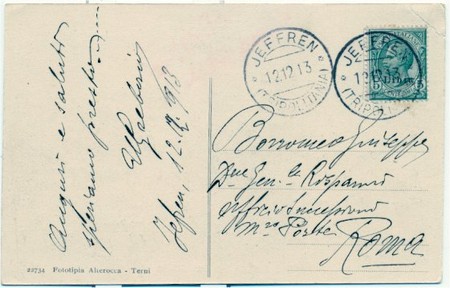 Auguri e saluti
speriamo presto
Jefren, 12.12.1913
JEFFREN
12.12.13
(TRIPOLITANIA)
JEFFREN
12.12.13
(TRIPOLI
5
Borromeo Giuseppe
Gen. Risparmi
Ufficio
Poste
Roma
22734 Fototipia Alterocca - Terni